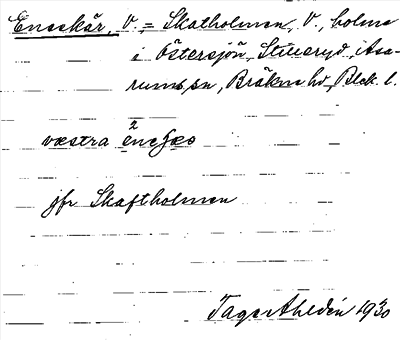 Eneskär, V. = Skatholmen, V., holme
i Östersjön, Stilleryd, Asa-
rums sn, Bräkne hd, Blek. l.
västra
jfr Skaftholmen
Tage Ahldén 1930